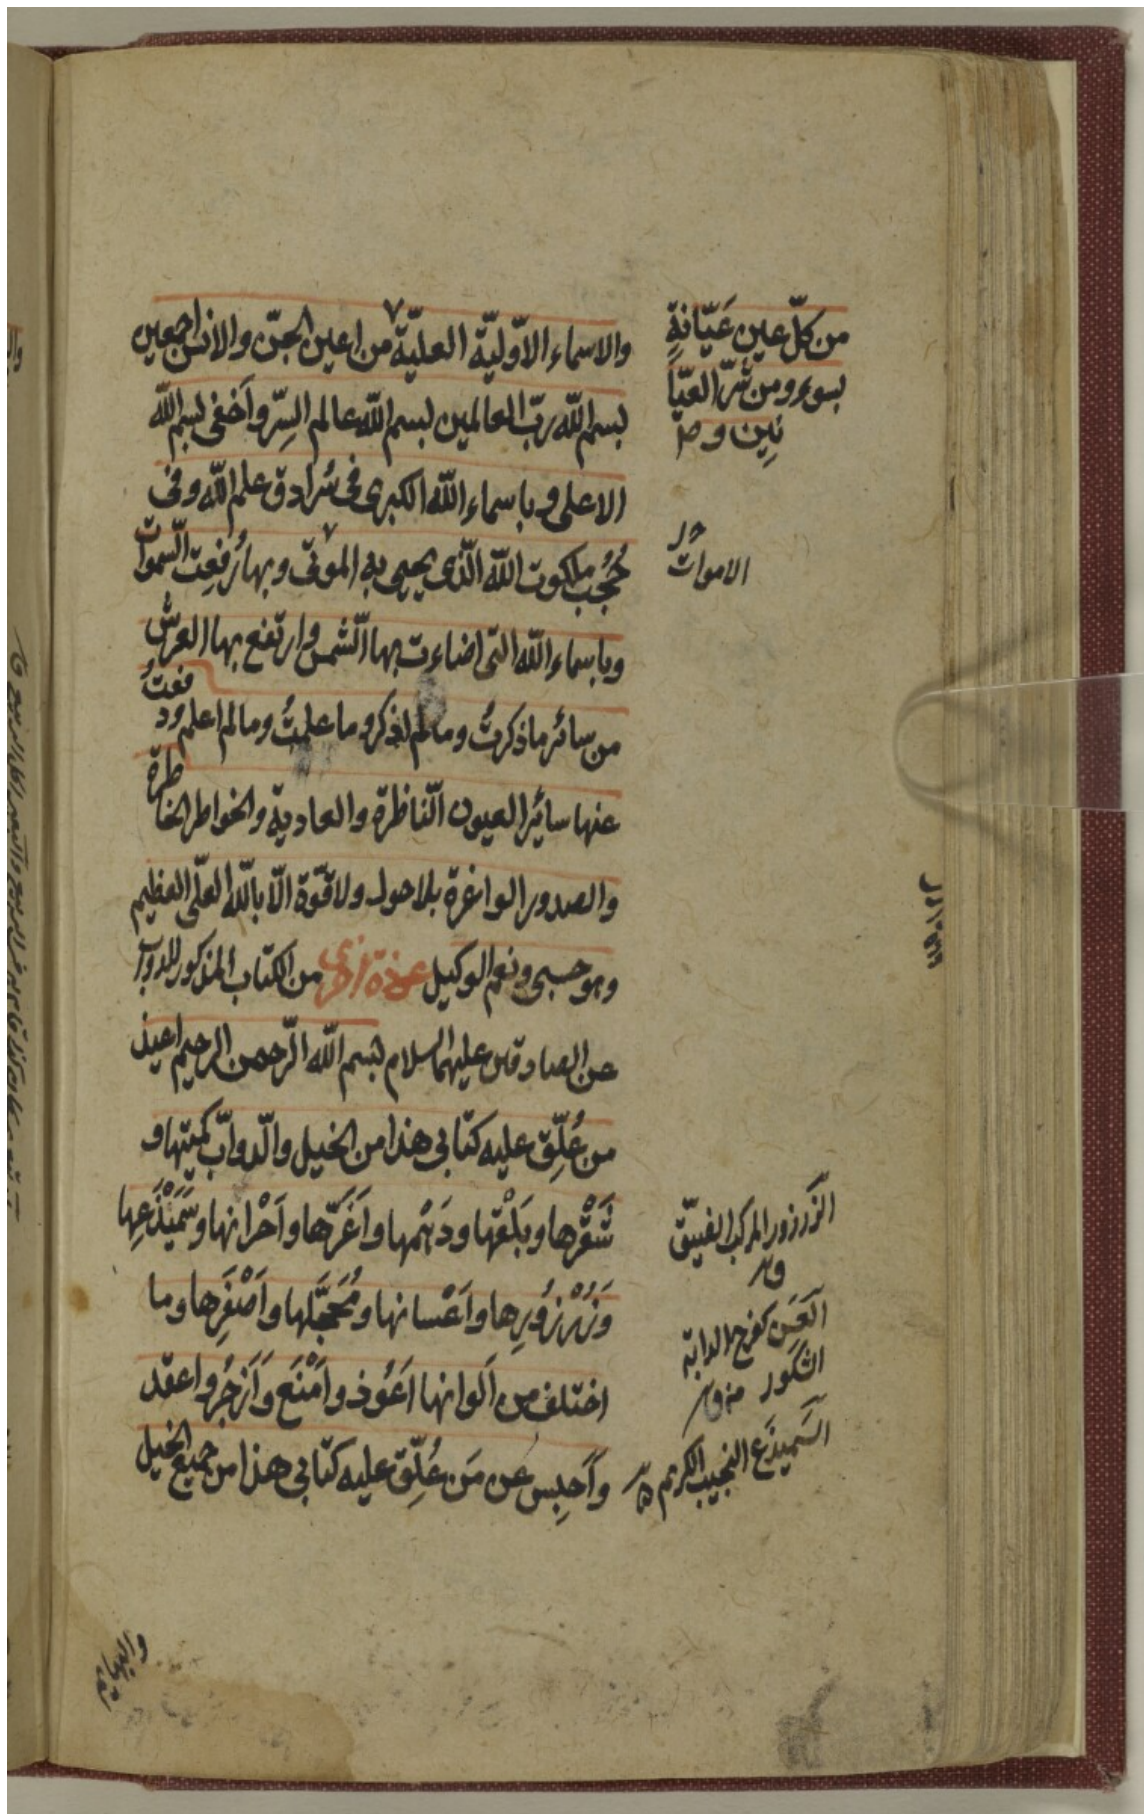 والاسماء الاوّليّة العليّة من اعين الجنّ والانس اجمعين
بسم اللّه ربّ العالمين بسم اللّه عالم السِرّ واَخفى بسم اللّه
الاعلى وباسماء اللّه الكبرى فى سُرادق علم اللّه وفى
حُجُب ملكوت اللّه الّذى يحيى به الموتى وبها رُفِعت السّموات
وباسماء اللّه التى اضاءت بها الشّمس وارتفع بها العرشُ
من سائر ماذكرتُ ومالم اذكر وما علمتُ ومالم اعلم ودفعتُ
عنها سائرالعيون النّاظرة والعادية والخواطر الخاطرة
والصدور الواغرة بلاحول ولاقوّة الّا باللّه العلّى العظيم
وهو حسبى ونعم الوكيل عوذة اخرى من الكتاب المذكور للدوابّ
عن الصادقين عليهما السلام بسم اللّه الرّحمن الرحيم اعيذ
من عُلِّق عليه كتابى هذا من الخيل والدّوابّ كميتها و
شَقْرِها وبَلْقها ودَهْمها واَغَرّها واَحْرانها وسَمَيْذَعِها
وَزُرْزوُرِها واَعْسانها ومُحَجَّلها واَصْفَرِها وما
اختلف من اَلوانها اَعَوُذ واَمْنَع وَاَزجُر واعقد
واَحبِس عن مَن عُلِّق عليه كتابى هذا من جميع الخيل
والبهايم
من كلّ عين عَيّانةٍ
بسوء ومن شرّ العيّا
نين
الاموات
الزَرزور المركب الضيّق
العَسَن
الدابة
الشكور
السَميذَع النجيب الكريم